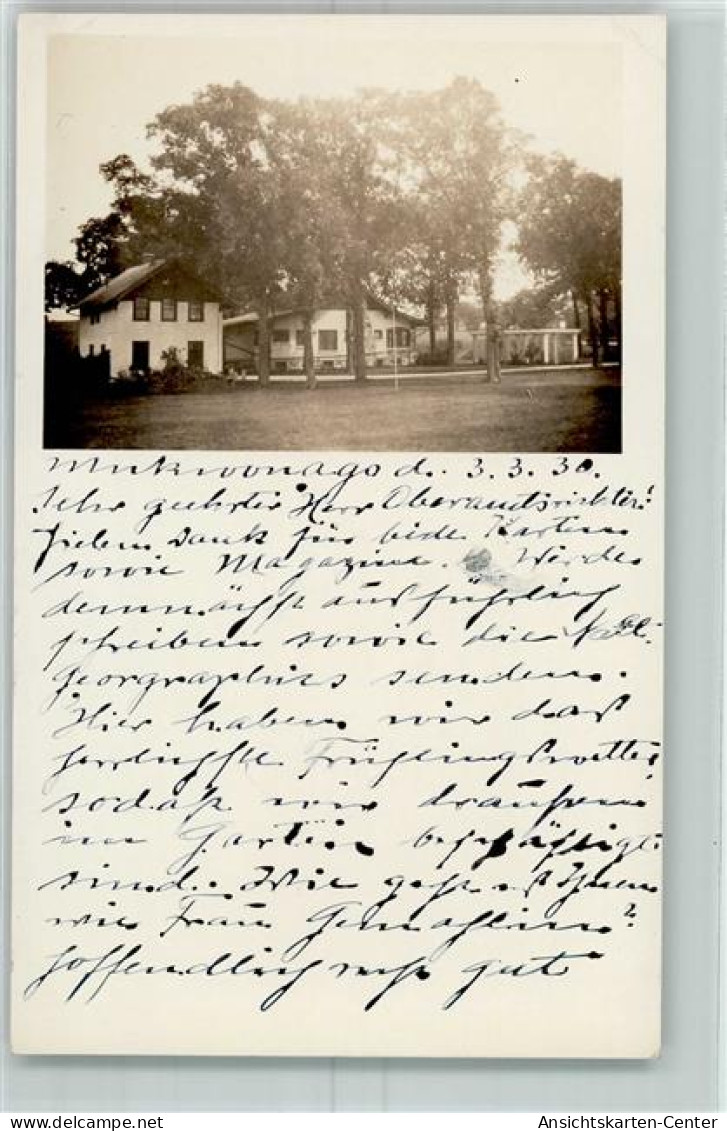 Mukwonago d. 3.3.30.
Sehr geehrter Herr Oberamtsrichter!
Vielen Dank für beide Karten
sowie Magazine. Werde
demnächst ausführlich
schreiben sowie die Natl.
Geographics senden.
Hier haben wir das
herrlichste Frühlingswetter
sodaß wir draußen
im Garten beschäftigt
sind. Wie geht es Ihnen
wie Frau Gemahlin?
hoffendlich recht gut
Ansichtskarten-Center